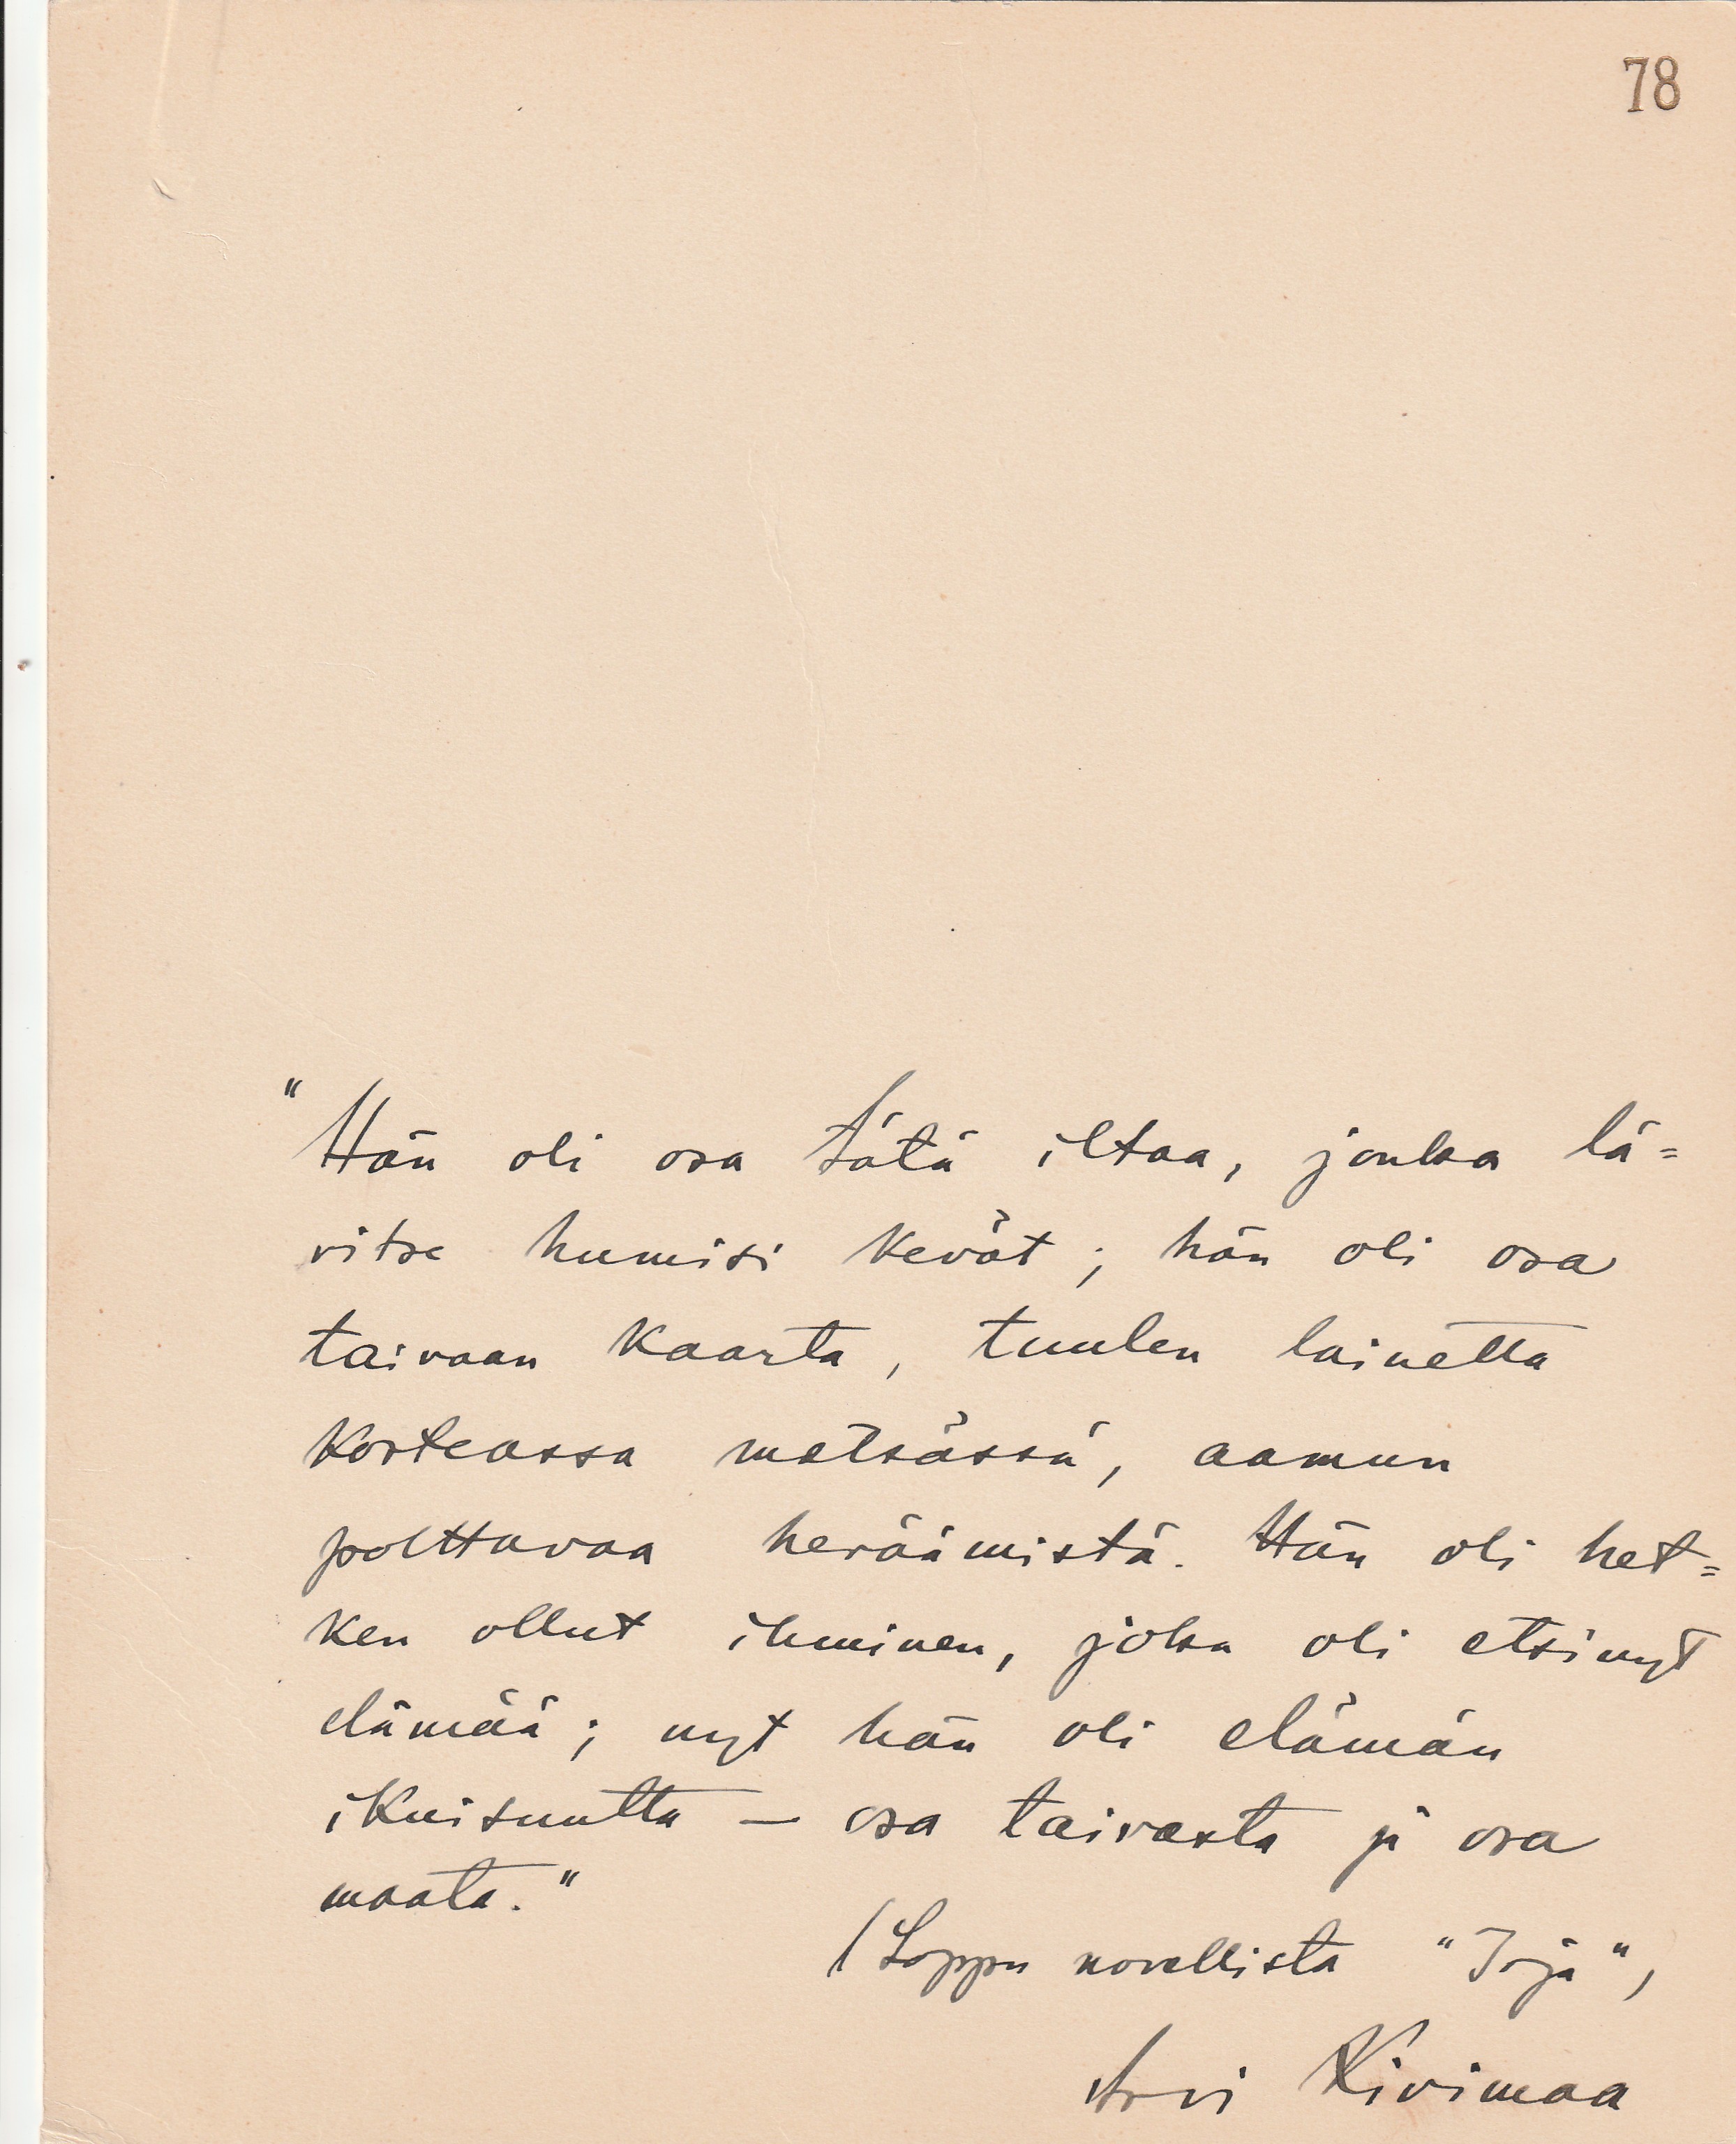 78
"Hän oli osa tätä iltaa, jonka lä=
vitse humisi kevät; hän oli osa
taivaan kaarta, tuulen lainetta
korkeassa metsässä, aamun
polttavaa heräämistä. Hän oli het=
ken ollut ihminen, joka oli etsinyt
elämää; nyt hän oli elämän
ikuisuutta — osa taivasta ja osa
maata."
(Loppu novellista "Irja",
Arvi Kivimaa